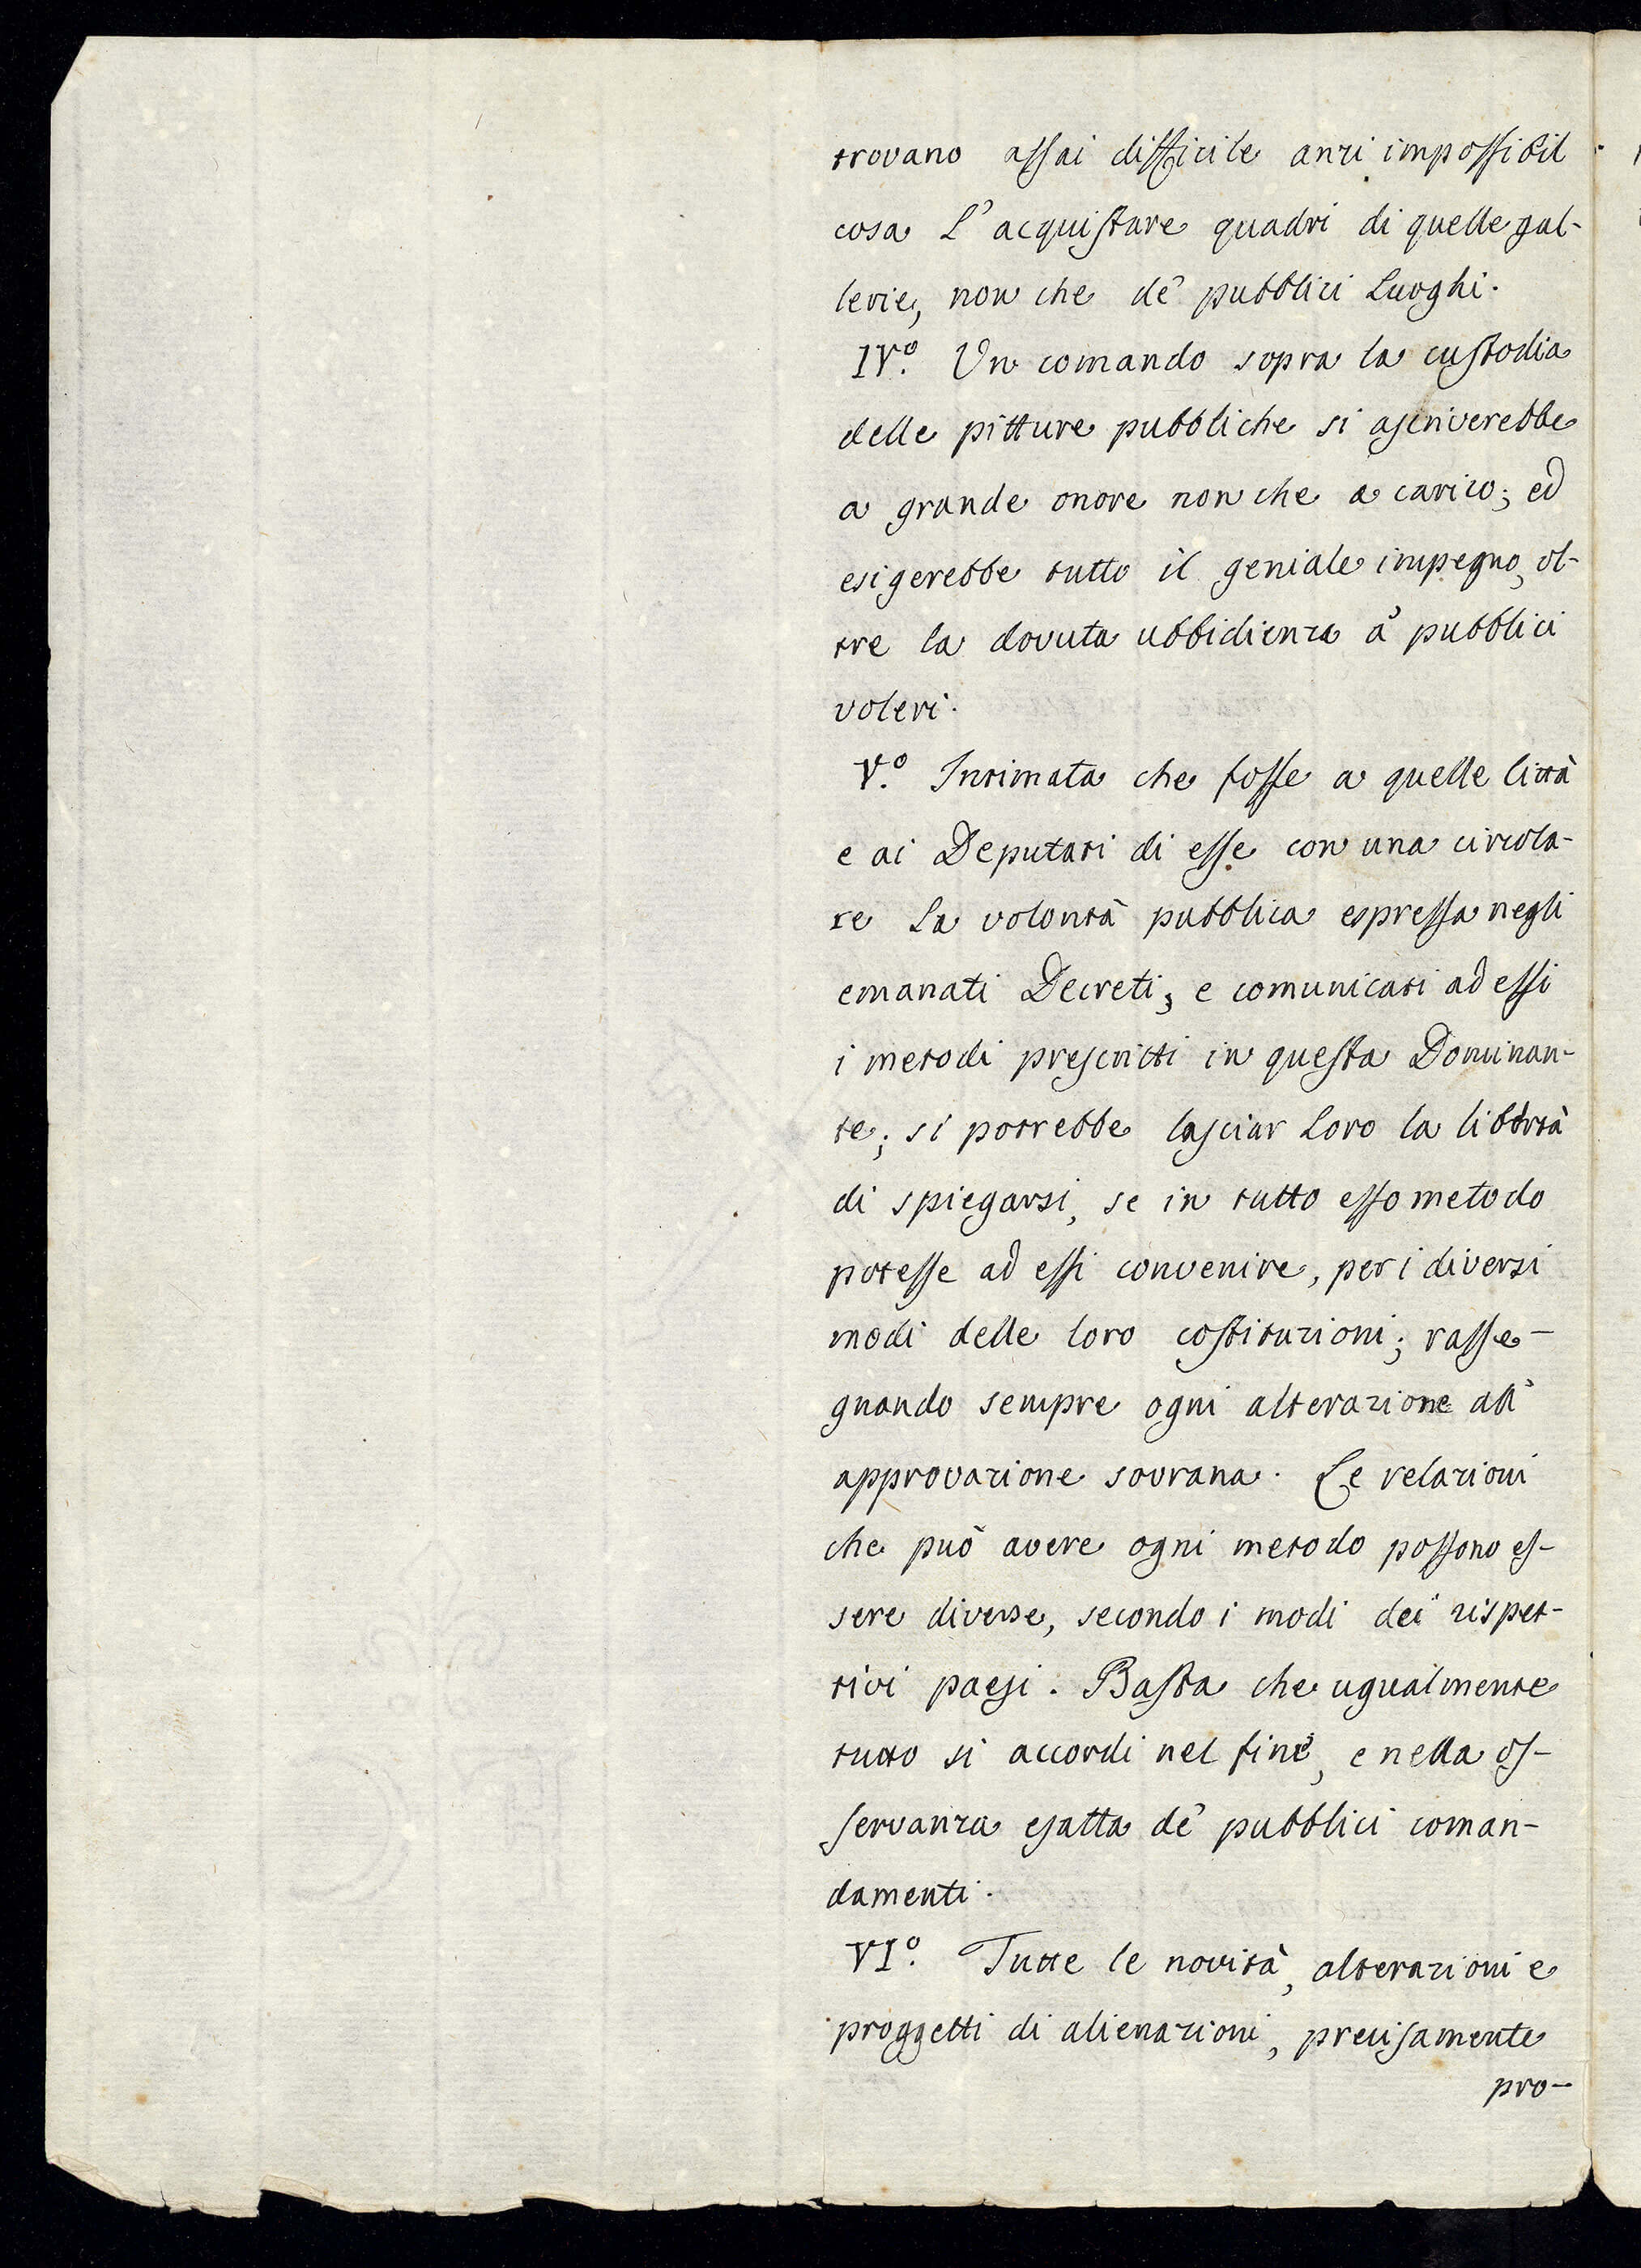 trovano assai difficile anzi impossibil
cosa l'acquistare quadri di quelle gal-
lerie, non che de' pubblici Luoghi.
IV.º Un comando sopra la custodia
delle pitture pubbliche si ascriverebbe
a grande onore non che a carico; ed
esigerebbe tutto il geniale impegno, ol-
tre la dovuta ubbidienza a' pubblici
voleri.
V.º Intimata che fosse a quelle Città
e ai Deputati di esse con una circola-
re la volontà pubblica espressa negli
emanati Decreti, e comunicati ad essi
i metodi prescritti in questa Dominan-
te; si potrebbe lasciar loro la libertà
di spiegarsi, se in tutto esso metodo
potesse ad essi convenire, per i diversi
modi delle loro costituzioni; rasse-
gnando sempre ogni alterazione all'
approvazione sovrana. Le relazioni
che può avere ogni metodo possono es-
sere diverse, secondo i modi dei rispet-
tivi paesi. Basta che ugualmente
tutto si accordi nel fine, e nella os-
servanza esatta de' pubblici coman-
damenti.
VI.º Tutte le novità, alterazioni e
proggetti di alienazioni, precisamente
pro-